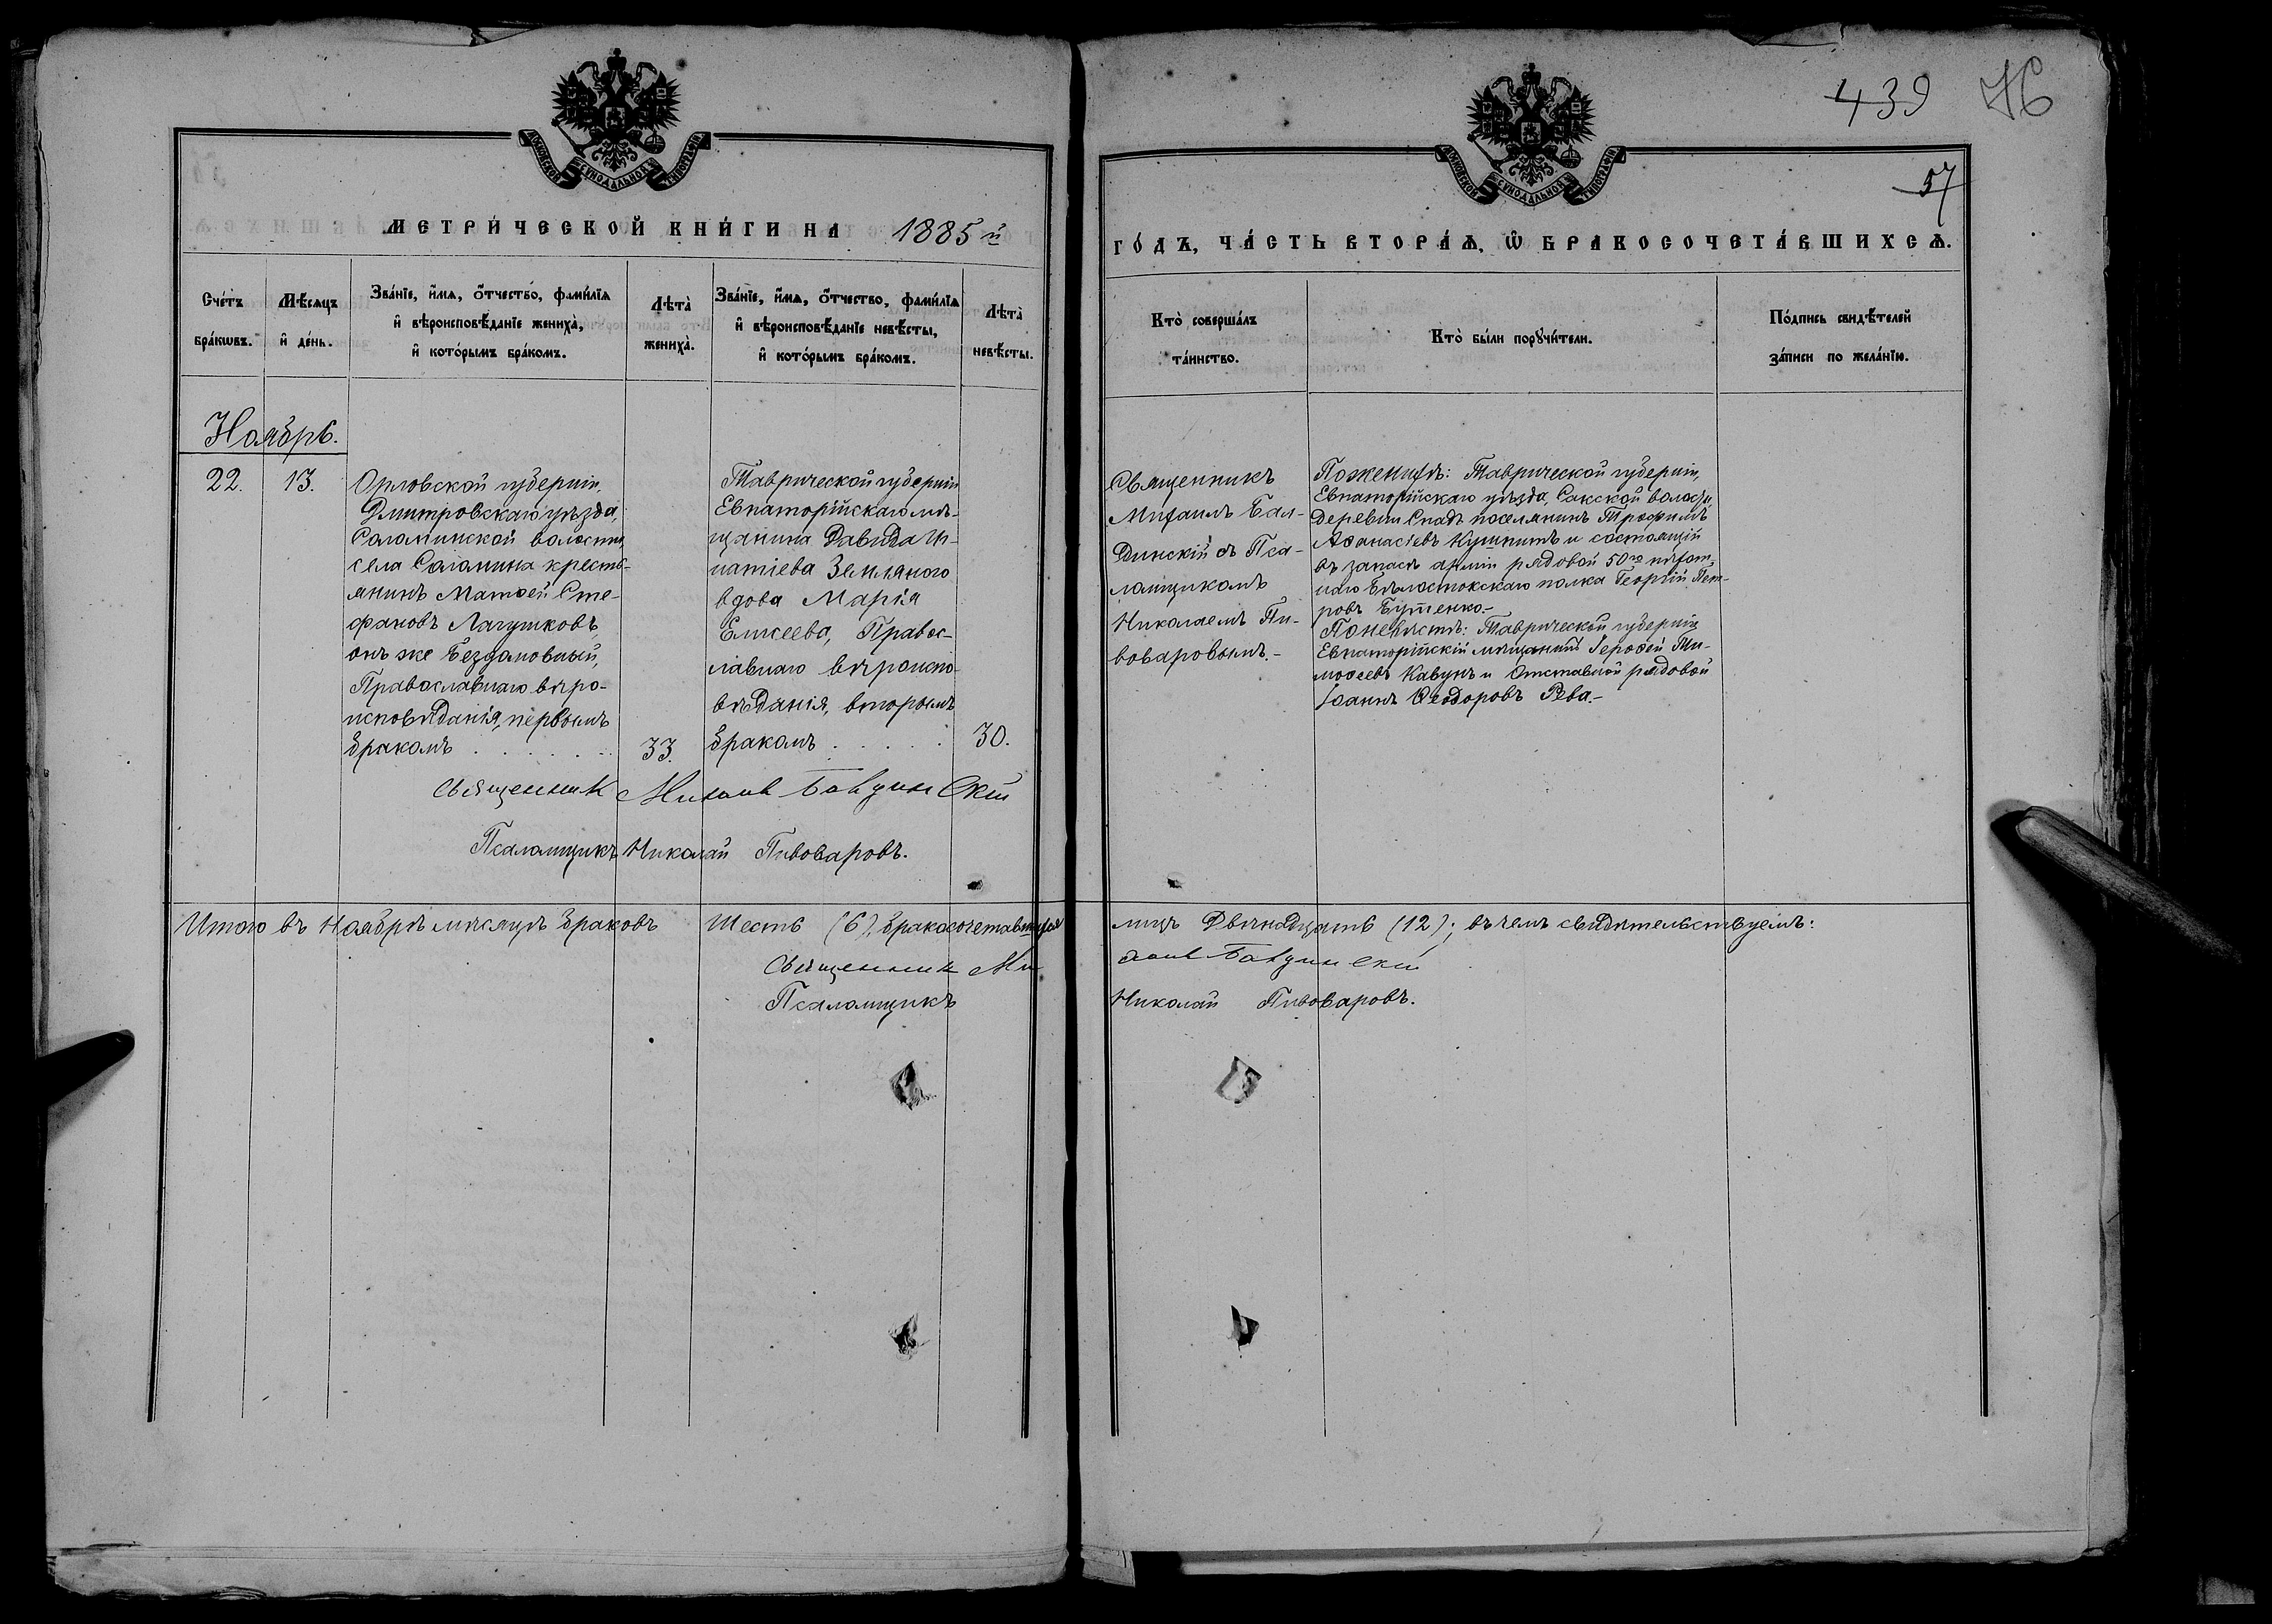 439 76
57
МОСКОВСКОЙ СУНОДАЛЬНОЙ ТИПОГРАФІИ
МОСКОВСКОЙ СУНОДАЛЬНОЙ ТИПОГРАФІИ
МЕТРИ́ЧЕСКОЙ КНИ́ГИ НА 1885 й
ГО́ДЪ, ЧА́СТЬ ВТОРА́Ѧ, Ѽ БРАКОСОЧЕТА́ВШИХСѦ.
Сче́тъ
бра́кѡвъ.
Мѣ́сяцъ
и҆ де́нь.
Зва́нїе, и҆́мѧ, ѻ҆́тчество, фами́лїѧ
и҆ вѣроисповѣ́данїе жениха̀,
и҆ кото́рымъ бра́комъ.
Лѣта̀
жениха̀.
Зва́нїе, и҆́мѧ, ѻ҆́тчество, фами́лїѧ
и҆ вѣроисповѣ́данїе невѣ́сты,
и҆ кото́рымъ бра́комъ.
Лѣта̀
невѣ́сты.
Кто̀ соверша́лъ
та́инство.
Кто̀ бы́ли порꙋчи́тели.
По́дпись свидѣ́телей
за́писи по жела́нїю.
Ноябрь.
22.
13.
Орловской губерніи,
Дмитровскаго уѣзда,
Соломинской волости,
села Соломина кресть-
янинъ Матѳей Сте-
фановъ Лагушковъ,
онъ же Бездомовный,
Православнаго вѣро-
исповѣданія, первымъ
бракомъ . . . . . .
33.
Таврической губерніи
Евпаторійскаго мѣ-
щанина Давида Иг-
натіева Землянаго
вдова Марія
Елисеева, Правос-
лавнаго вѣроиспо-
вѣданія, вторымъ
бракомъ . . . . .
30.
Священникъ
Михаилъ Бал-
динскій съ Пса-
ломщикомъ
Николаемъ Пи-
воваровымъ.-
По женихѣ: Таврической губерніи,
Евпаторійскаго уѣзда, Сакской волости,
деревни Спатъ поселянинъ Трофимъ
Аѳанасіевъ Кушнитъ и состоящій
въ запасѣ арміи рядовой 50го пѣхот-
наго Бѣлостокскаго полка Георгій Пет-
ровъ Бутенко.-
По невѣстѣ: Таврической губерніи
Евпаторійскій мѣщанинъ Героѳей Ти-
моѳеевъ Кавунъ и отставной рядовой
Іоаннъ Ѳеодоровъ Рева.-
Священник Михаил Балдинский
Псаломщикъ Николай Пивоваровъ.
Итого въ Ноябрѣ мѣсяцѣ браковъ Шесть (6), бракосочетавшихся
лицъ Двѣнадцать (12); въ чемъ свидѣтельствуемъ:
Священник Ми-
хаил Балдинский
Псаломщикъ
Николай Пивоваровъ.